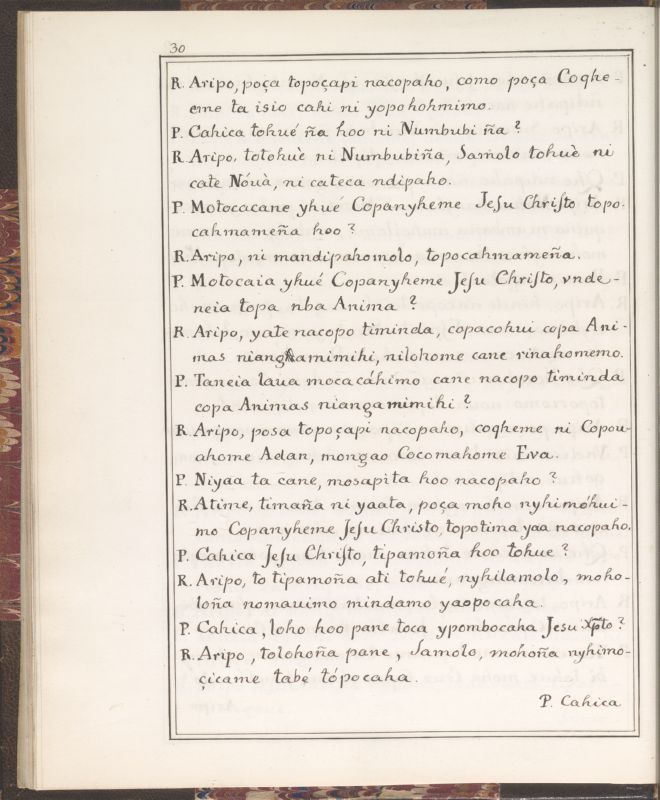 30
R. Aripo, poça topoçapi nacopaho, como poça Coqhe-
eme ta isio cahi ni yopohohmimo.
P. Cahica tohué ña hoo ni Numbubi ña?
R. Aripo, totohuè ni Numbubiña, Samolo tohuè ni
cate Nóuà, ni cateca ndipaho.
P. Motocacane yhué Copanyheme Jeſu Chriſto topo-
cahmameña hoo?
R. Aripo, ni mandipahomolo, topocahmameña.
P. Motocaia yhué Copanyheme Jeſu Chriſto, vnde-
neia topa nba Anima?
R. Aripo, yate nacopo timinda, copacohui copa Ani-
mas nianghamimihi, nilohome cane rinahomemo.
P. Taneia laua mocacáhimo cane nacopo timinda
copa Animas niangamimihi?
R. Aripo, posa topoçapi nacopaho, coqheme ni Copou-
ahome Adan, mongao Cocomahome Eva.
P. Niyaa ta cane, mosapita hoo nacopaho?
R. Atime, timaña ni yaata, poça moho nyhimóhui-
mo Copanyheme Jeſu Christo, topotima yaa nacopaho.
P. Cahica Jeſu Chriſto, tipamoña hoo tohue?
R. Aripo, to tipamoña ati tohué, nyhilamolo, moho-
loña nomauimo mindamo yaopocaha.
P. Cahica, loho hoo pane toca ypombocaha Jesu xp̄to?
R. Aripo, tolohoña pane, Samolo, mohoña nyhimo-
çicame tabé tópocaha.
P. Cahica